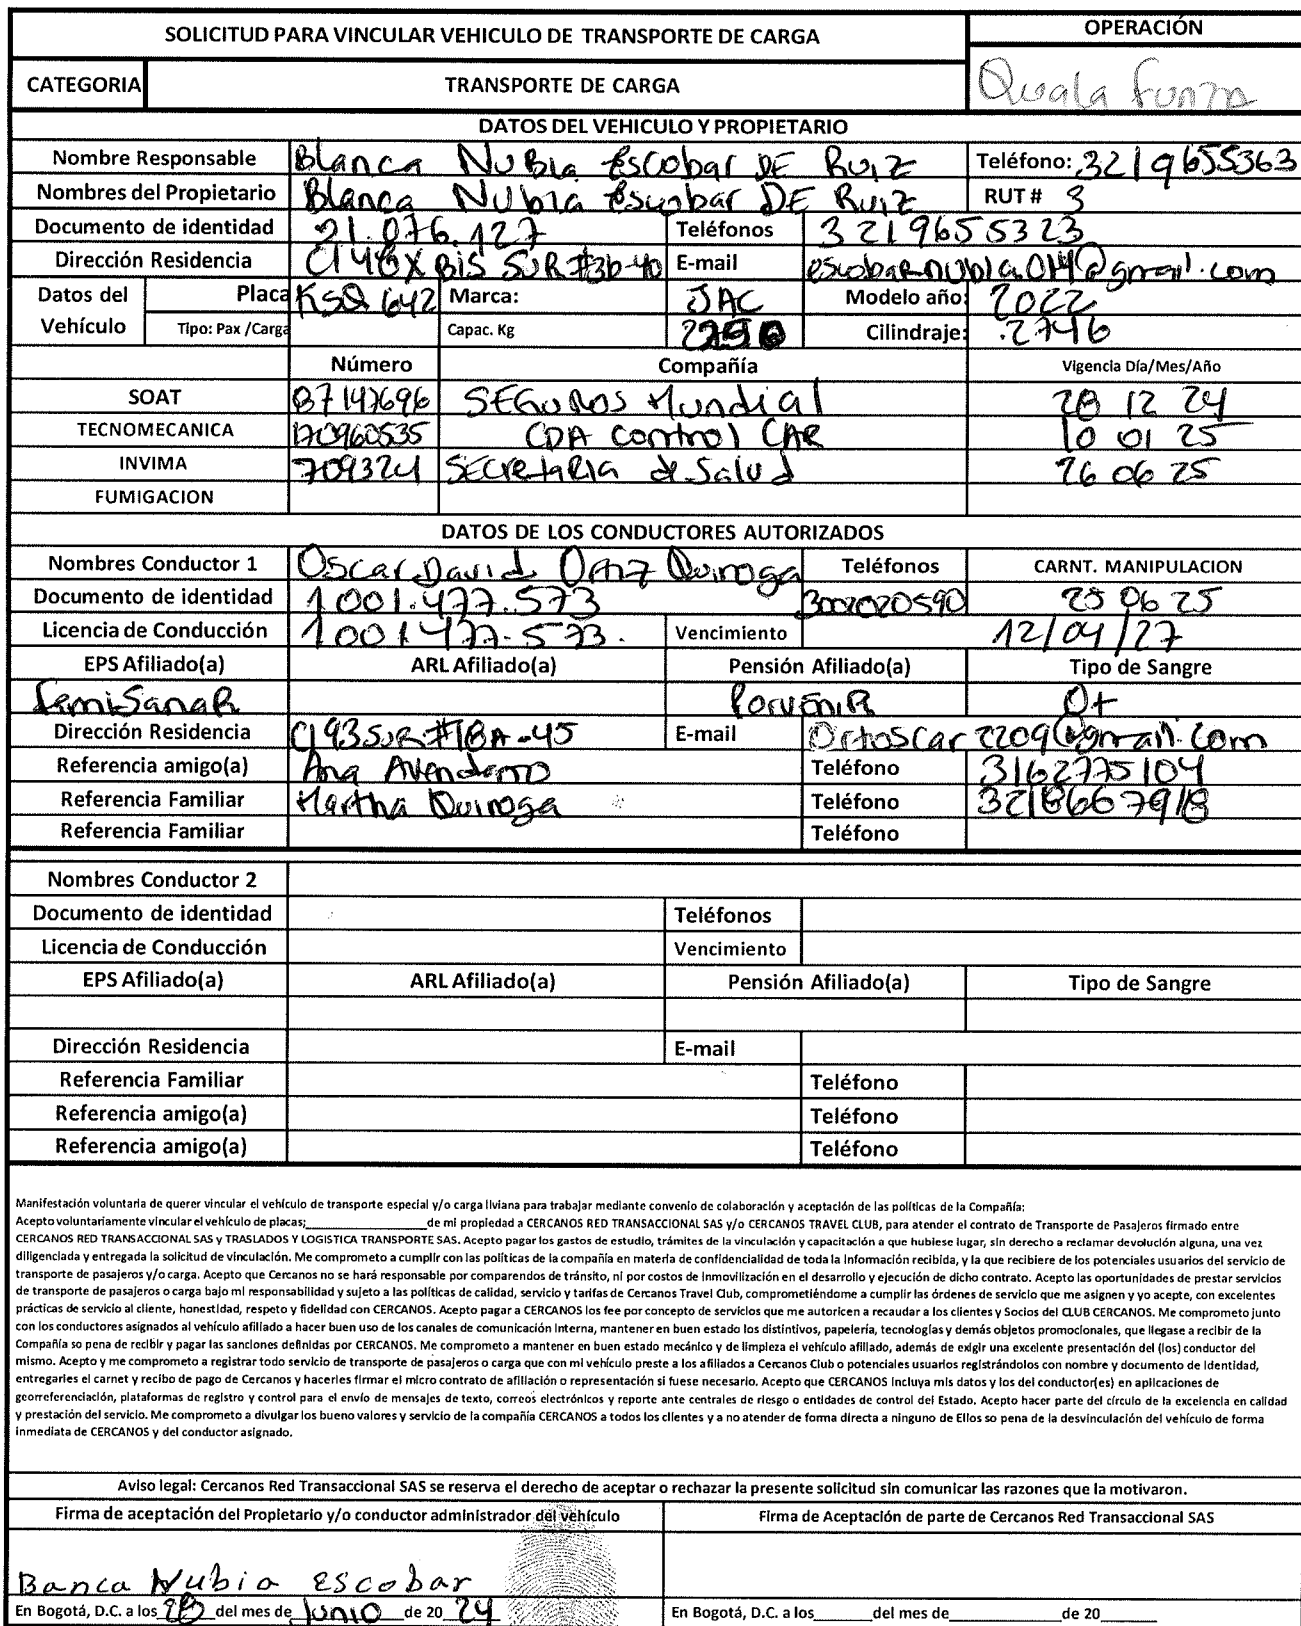 SOLICITUD PARA VINCULAR VEHICULO DE TRANSPORTE DE CARGA
OPERACIÓN
CATEGORIA TRANSPORTE DE CARGA
Quala Funza
DATOS DEL VEHICULO Y PROPIETARIO
Nombre Responsable Blanca Nubia Escobar DE Ruiz Teléfono: 3219655363
Nombres del Propietario Blanca Nubia Escobar DE Ruiz RUT # 3
Documento de identidad 21.076.127 Teléfonos 3219655323
Dirección Residencia Cl 48X BIS SUR #3b-40 E-mail escobarnubia014@gmail.com
Datos del Vehículo Placa KSQ 642 Marca: JAC Modelo año: 2022
Tipo: Pax /Carga Capac. Kg Cilindraje: .2746
Número Compañía Vigencia Día/Mes/Año
SOAT 87147696 SEGUROS Mundial 28 12 24
TECNOMECANICA 170960535 CDA Control CAR 10 01 25
INVIMA 709324 SECRETARIA de Salud 26 06 25
FUMIGACION
DATOS DE LOS CONDUCTORES AUTORIZADOS
Nombres Conductor 1 Oscar David Ortiz Quiroga Teléfonos CARNT. MANIPULACION
Documento de identidad 1001.477.573 3002020590 25 06 25
Licencia de Conducción 1001477-573. Vencimiento 12/04/27
EPS Afiliado(a) ARL Afiliado(a) Pensión Afiliado(a) Tipo de Sangre
FamiSanaR PorvENIR O+
Dirección Residencia Cl 93 SUR #18A-45 E-mail Ortoscar2209@gmail.com
Referencia amigo(a) Ana Avendaño Teléfono 3162775104
Referencia Familiar Martha Quiroga Teléfono
Referencia Familiar Teléfono
Nombres Conductor 2
Documento de identidad Teléfonos
Licencia de Conducción Vencimiento
EPS Afiliado(a) ARL Afiliado(a) Pensión Afiliado(a) Tipo de Sangre
Dirección Residencia E-mail
Referencia Familiar Teléfono
Referencia amigo(a) Teléfono
Referencia amigo(a) Teléfono
Manifestación voluntaria de querer vincular el vehículo de transporte especial y/o carga liviana para trabajar mediante convenio de colaboración y aceptación de las políticas de la Compañía:
Acepto voluntariamente vincular el vehículo de placas;____________________de mi propiedad a CERCANOS RED TRANSACCIONAL SAS y/o CERCANOS TRAVEL CLUB, para atender el contrato de Transporte de Pasajeros firmado entre
CERCANOS RED TRANSACCIONAL SAS y TRASLADOS Y LOGISTICA TRANSPORTE SAS. Acepto pagar los gastos de estudio, trámites de la vinculación y capacitación a que hubiese lugar, sin derecho a reclamar devolución alguna, una vez
diligenciada y entregada la solicitud de vinculación. Me comprometo a cumplir con las políticas de la compañía en materia de confidencialidad de toda la información recibida, y la que recibiere de los potenciales usuarios del servicio de
transporte de pasajeros y/o carga. Acepto que Cercanos no se hará responsable por comparendos de tránsito, ni por costos de inmovilización en el desarrollo y ejecución de dicho contrato. Acepto las oportunidades de prestar servicios
de transporte de pasajeros o carga bajo mi responsabilidad y sujeto a las políticas de calidad, servicio y tarifas de Cercanos Travel Club, comprometiéndome a cumplir las órdenes de servicio que me asignen y yo acepte, con excelentes
prácticas de servicio al cliente, honestidad, respeto y fidelidad con CERCANOS. Acepto pagar a CERCANOS los fee por concepto de servicios que me autoricen a recaudar a los clientes y Socios del CLUB CERCANOS. Me comprometo junto
con los conductores asignados al vehículo afiliado a hacer buen uso de los canales de comunicación interna, mantener en buen estado los distintivos, papelería, tecnologías y demás objetos promocionales, que llegase a recibir de la
Compañía so pena de recibir y pagar las sanciones definidas por CERCANOS. Me comprometo a mantener en buen estado mecánico y de limpieza el vehículo afiliado, además de exigir una excelente presentación del (los) conductor del
mismo. Acepto y me comprometo a registrar todo servicio de transporte de pasajeros o carga que con mi vehículo preste a los afiliados a Cercanos Club o potenciales usuarios registrándolos con nombre y documento de identidad,
entregarles el carnet y recibo de pago de Cercanos y hacerles firmar el micro contrato de afiliación o representación si fuese necesario. Acepto que CERCANOS incluya mis datos y los del conductor(es) en aplicaciones de
georreferenciación, plataformas de registro y control para el envío de mensajes de texto, correos electrónicos y reporte ante centrales de riesgo o entidades de control del Estado. Acepto hacer parte del círculo de la excelencia en calidad
y prestación del servicio. Me comprometo a divulgar los bueno valores y servicio de la compañía CERCANOS a todos los clientes y a no atender de forma directa a ninguno de Ellos so pena de la desvinculación del vehículo de forma
inmediata de CERCANOS y del conductor asignado.
Aviso legal: Cercanos Red Transaccional SAS se reserva el derecho de aceptar o rechazar la presente solicitud sin comunicar las razones que la motivaron.
Firma de aceptación del Propietario y/o conductor administrador del vehículo Firma de Aceptación de parte de Cercanos Red Transaccional SAS
Banca Nubia escobar
En Bogotá, D.C. a los 28 del mes de Junio de 20 24 En Bogotá, D.C. a los_______del mes de___________de 20______